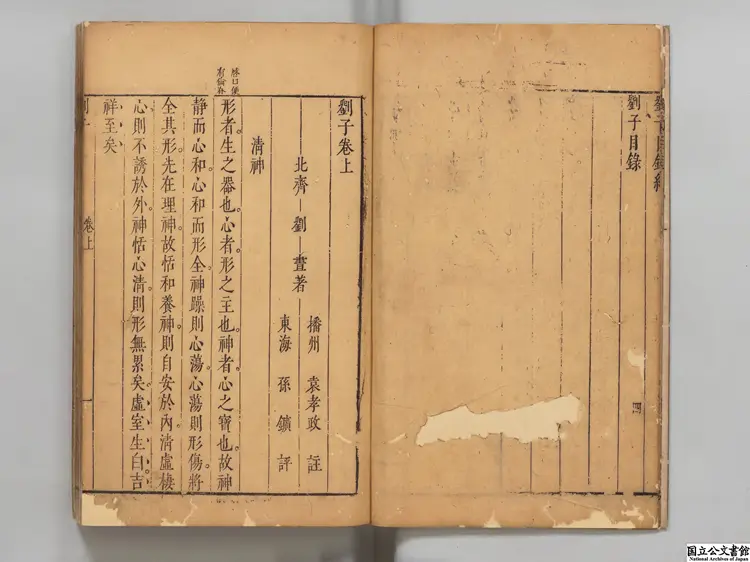 劉子目錄
四
劉子卷上
北齊 劉 晝著
播州 袁孝政 註
東海 孫鑛 評
清神
形者生之器也。心者形之主也。神者心之寶也。故神
靜而心和。心和而形全。神躁則心蕩。心蕩則形傷。將
全其形。先在理神。故恬和養神。則自安於內。清虛棲
心。則不誘於外。神恬心清。則形無累矣。虛室生白。吉
祥至矣
卷上
一
国立公文書館
National Archives of Japan